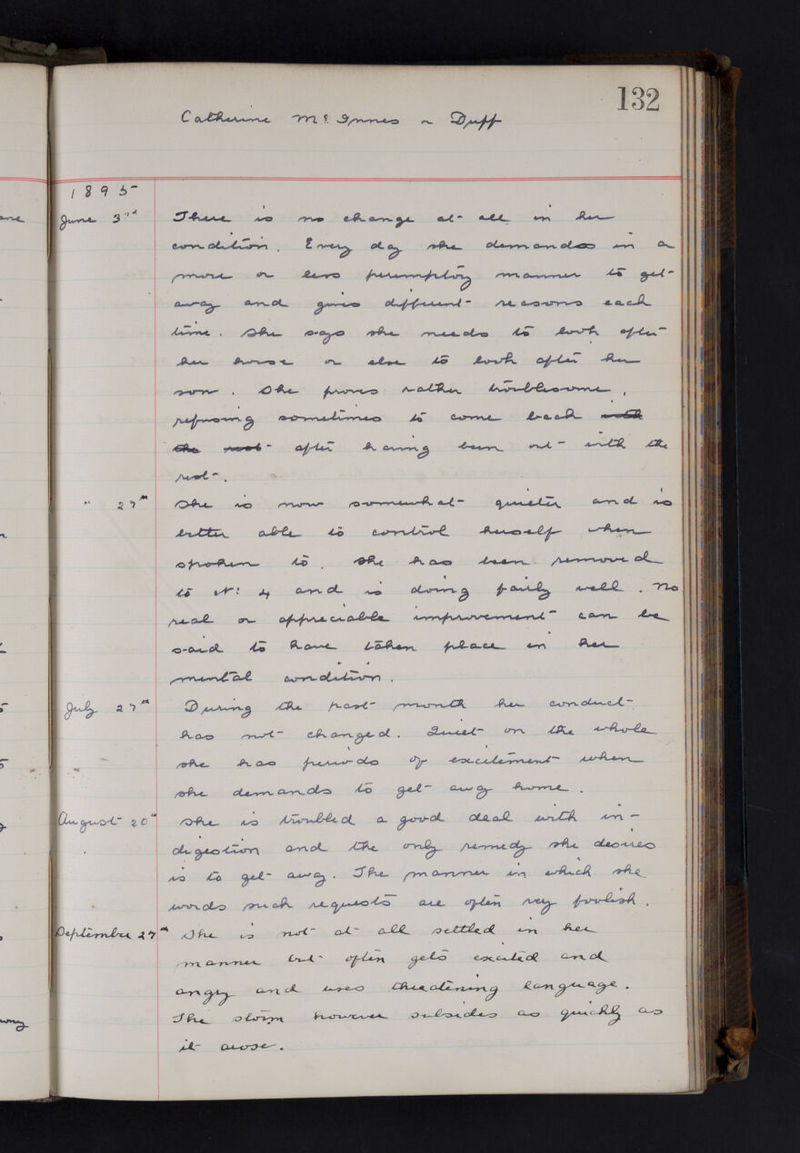 132
Catherine McInnes or Duff
1895
June 3rd There is no change at all in her
condition. Every day she demands in a
more or less peremptory manner to get
away and gives different reasons each
time. She says she needs to look after
her house or else to look after her
son. She proves rather troublesome,
refusing sometimes to come back with
the rest after having been out with the
rest.
" 27th She is now somewhat quieter and is
better able to control herself when
spoken to. She has been removed
to No: 4 and is doing fairly well. No
real or appreciable improvement can be
said to have taken place in her
mental condition.
July 27th During the past month her conduct
has not changed. Quiet on the whole
she has periods of excitement when
she demands to get away home.
August 20th She is troubled a good deal with in-
digestion and the only remedy she desires
is to get away. The manner in which she
words such requests are often very foolish.
September 27th She is not at all settled in her
manner but often gets excited and
angry and uses threatening language.
The storm however subsides as quickly as
it arose.